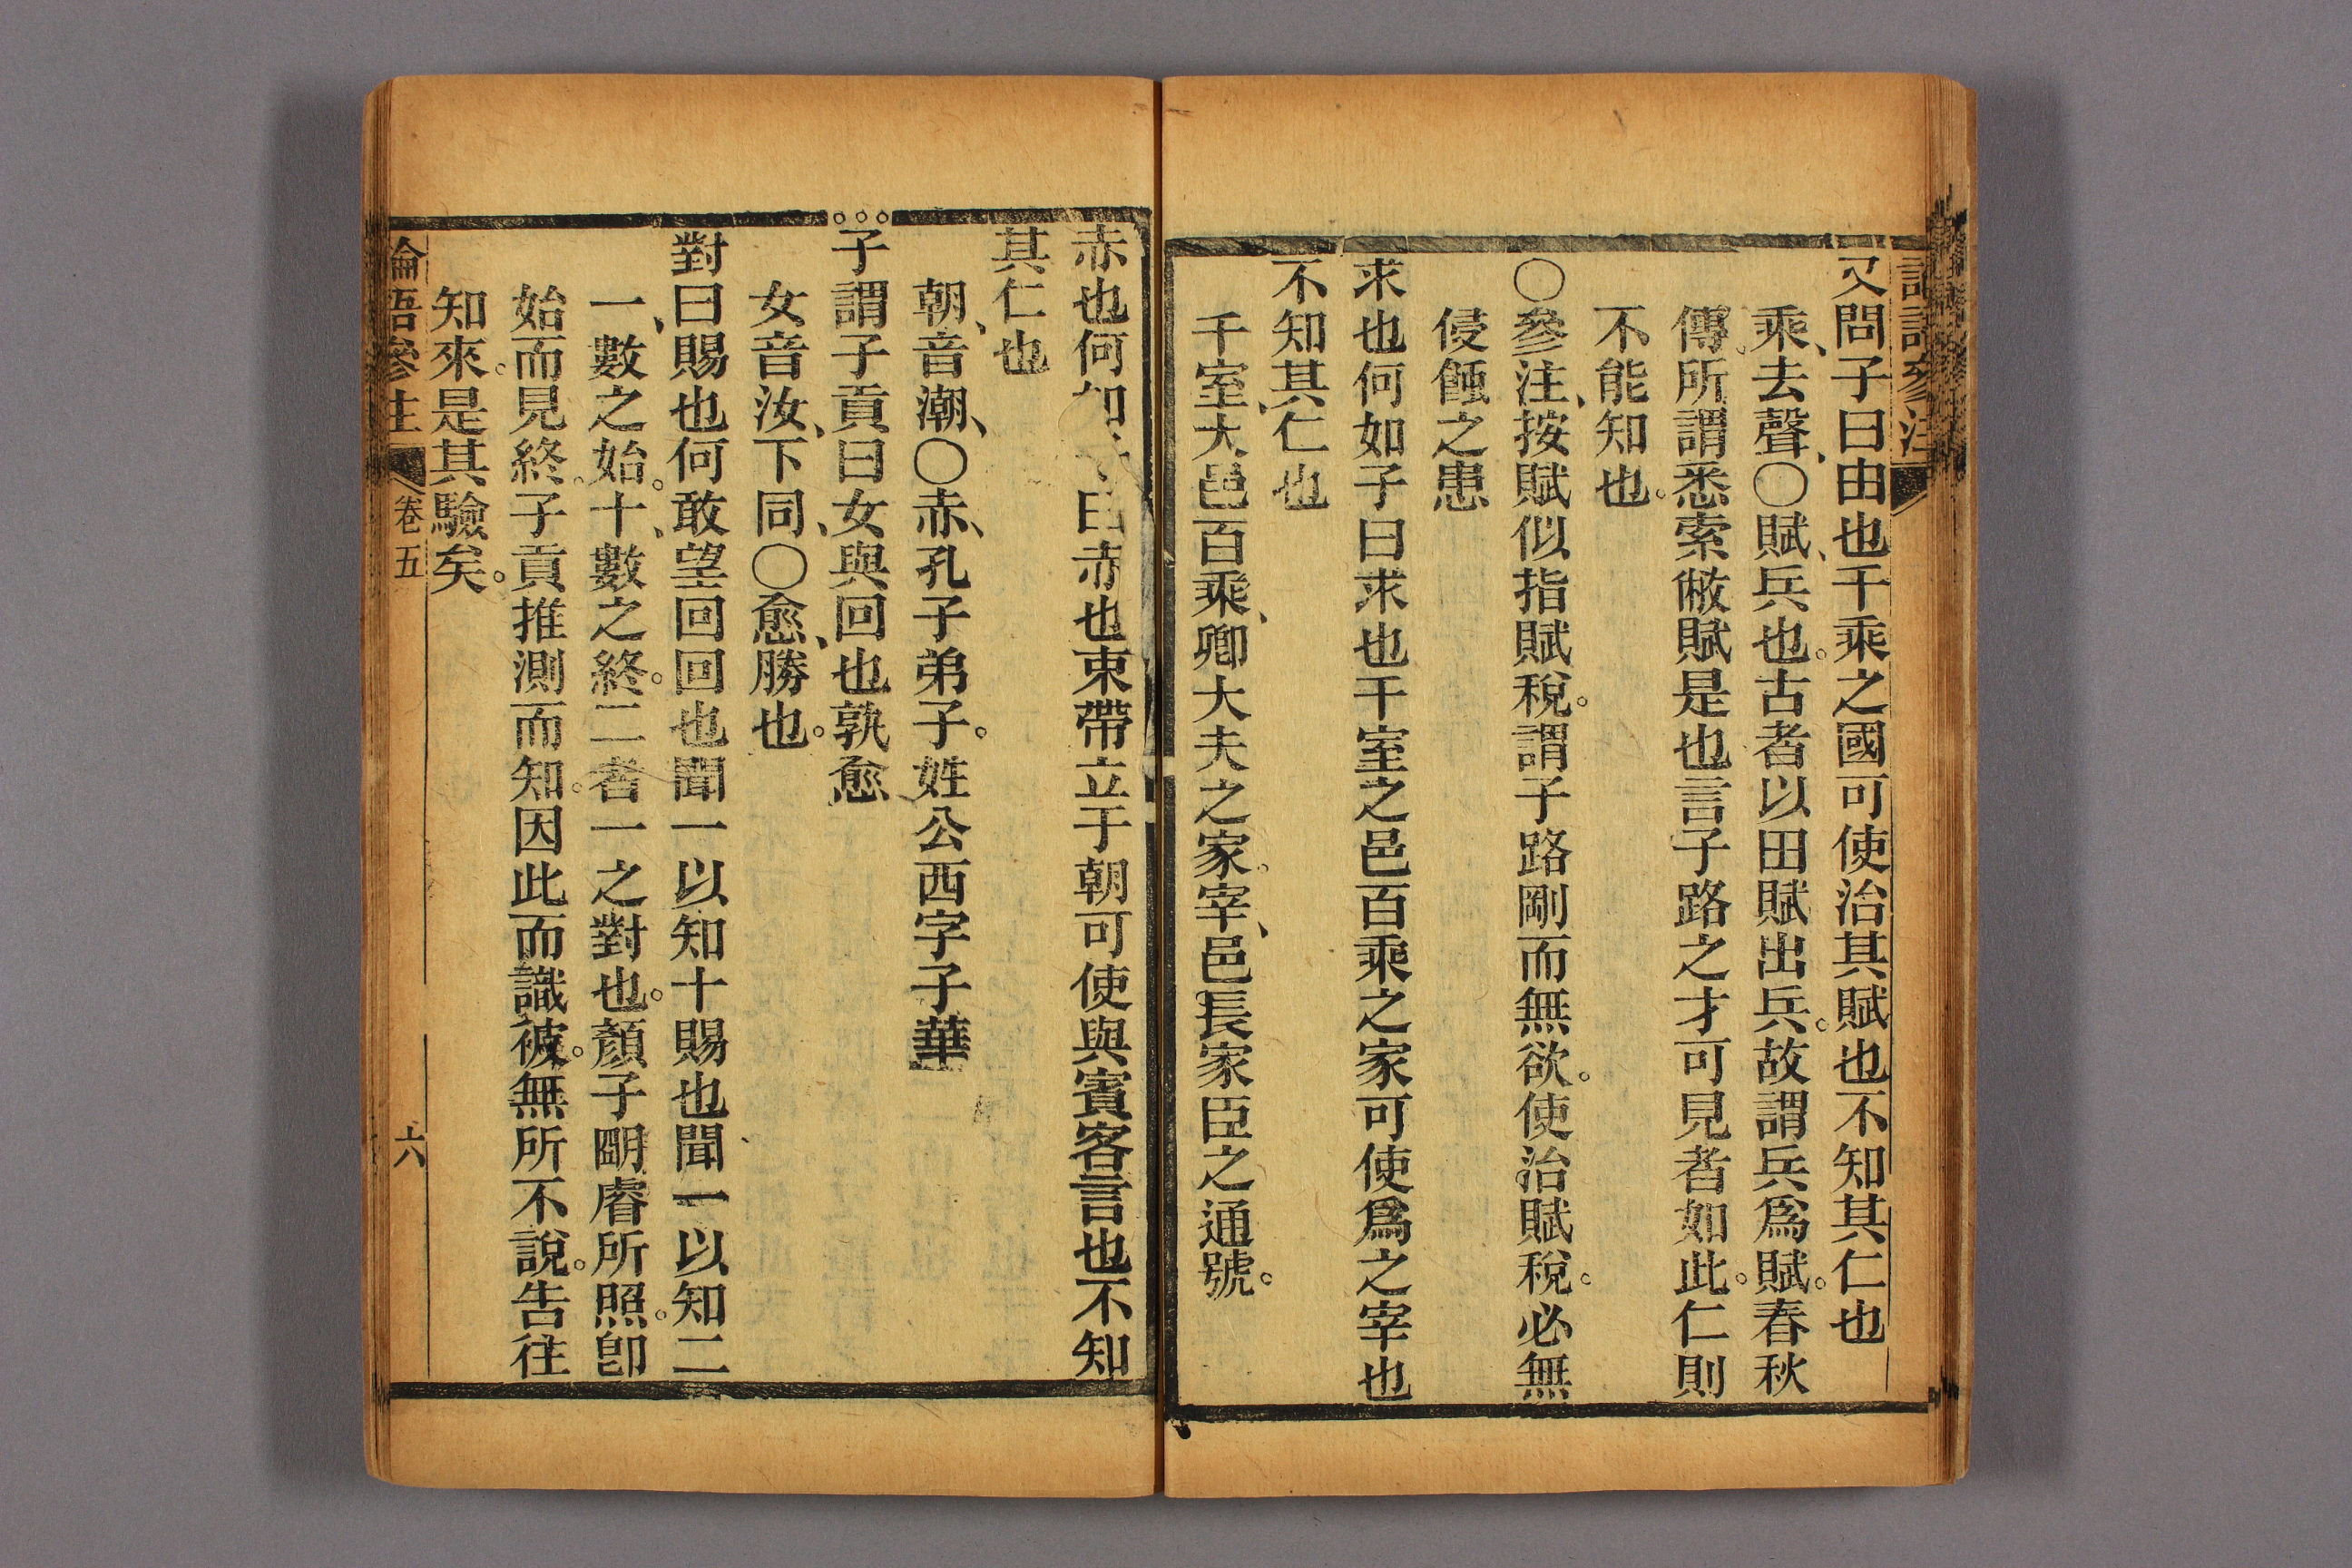 又問子曰由也千乘之國可使治其賦也不知其仁也
乘、去聲、〇賦、兵也。古者以田賦出兵。故謂兵爲賦。春秋
傳。所謂悉索敝賦是也言子路之才可見者如此。仁則
不能知也。
〇參注、按賦似指賦稅。謂子路剛而無欲。使治賦稅。必無
侵蝕之患
求也何如子曰求也千室之邑百乘之家可使爲之宰也
不知其仁也
千室、大邑百乘、卿大夫之家。宰、邑長家臣之通號。
赤也何如 曰赤也束帶立于朝可使與賓客言也不知
其仁也
朝、音潮、〇赤、孔子弟子。姓公西字子華
子謂子貢曰女與回也孰愈
女音汝、下同、〇愈、勝也。
對曰賜也何敢望回回也聞一以知十賜也聞一以知二
一、數之始。十、數之終。二者一之對也。顏子明睿所照。卽
始而見終。子貢推測而知。因此而識被。無所不說。告往
知來。是其驗矣。
論語參注 卷五 六